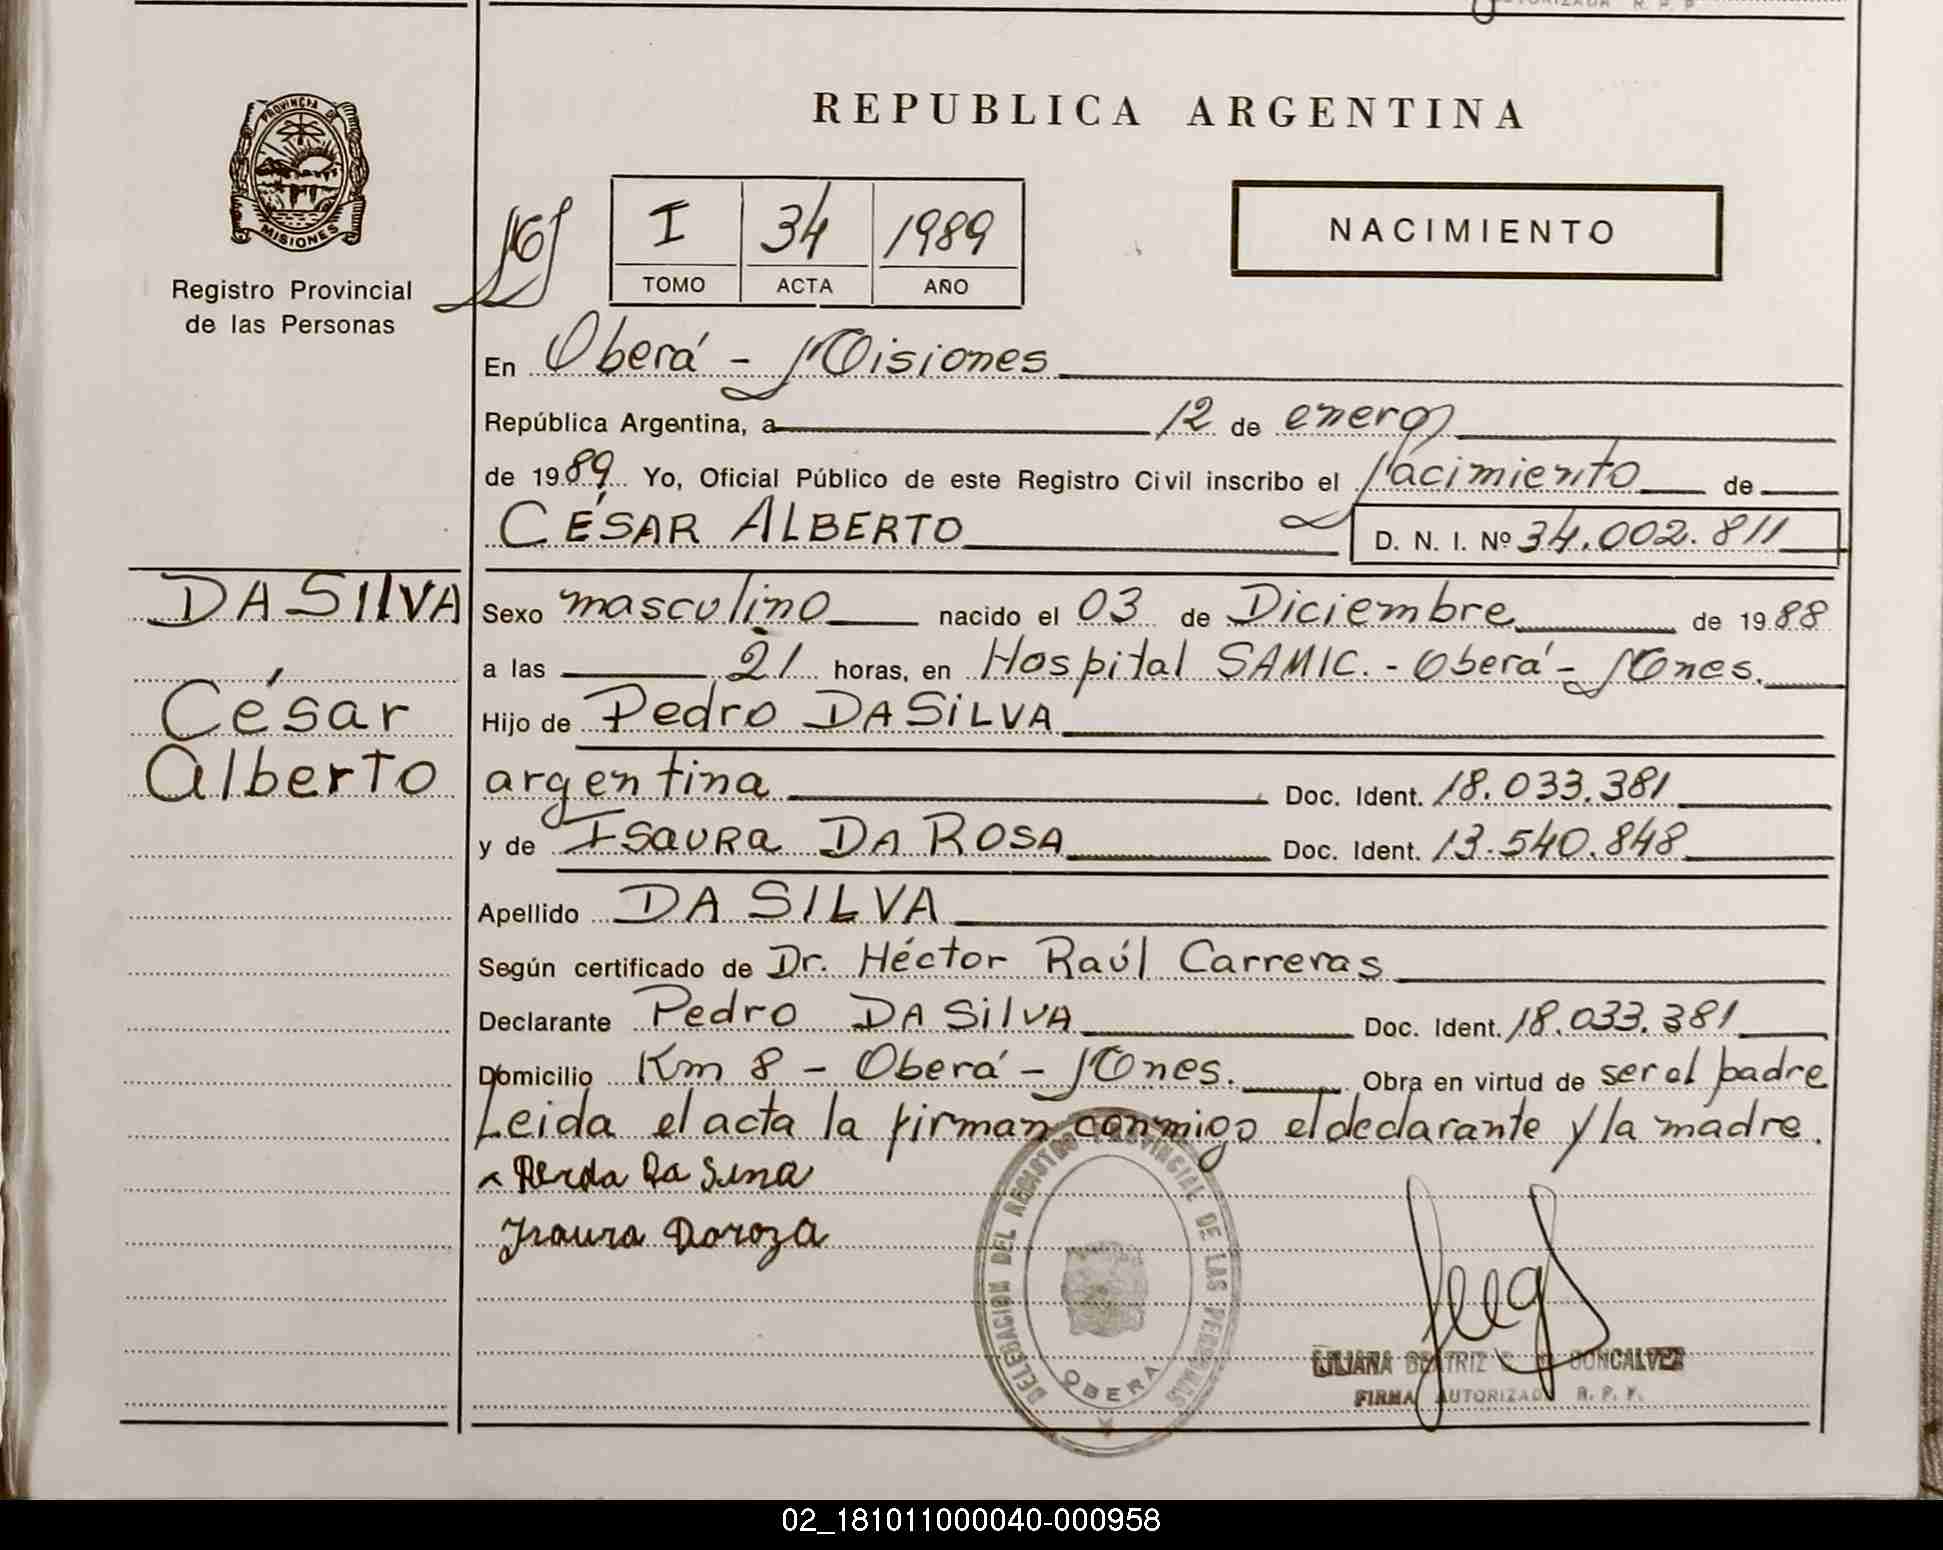 AUTORIZADA R. P. P.
REPUBLICA ARGENTINA
PROVINCIA DE
MISIONES
Registro Provincial
de las Personas
I 34 1989
TOMO ACTA AÑO
NACIMIENTO
En Oberá - Misiones
República Argentina, a 12 de enero
de 1989 Yo, Oficial Público de este Registro Civil inscribo el Nacimiento de
CÉSAR ALBERTO D. N. I. Nº 34.002.811
DA SILVA
César
Alberto
Sexo masculino nacido el 03 de Diciembre de 1988
a las 21 horas, en Hospital SAMIC. - Oberá - Mnes.
Hijo de Pedro DA SILVA
argentina Doc. Ident. 18.033.381
y de Isaura DA ROSA Doc. Ident. 13.540.848
Apellido DA SILVA
Según certificado de Dr. Héctor Raúl Carreras
Declarante Pedro DA SilVA Doc. Ident. 18.033.381
Domicilio Km 8 - Oberá - Mnes. Obra en virtud de ser el padre
Leida el acta la firman conmigo el declarante y la madre.
Da
Isaura Daroza
DELEGACION DEL REGISTRO PROVINCIAL DE LAS PERSONAS
OBERA
LILIANA BEATRIZ GONCALVEZ
FIRMA AUTORIZADA R. P. P.
02_181011000040-000958